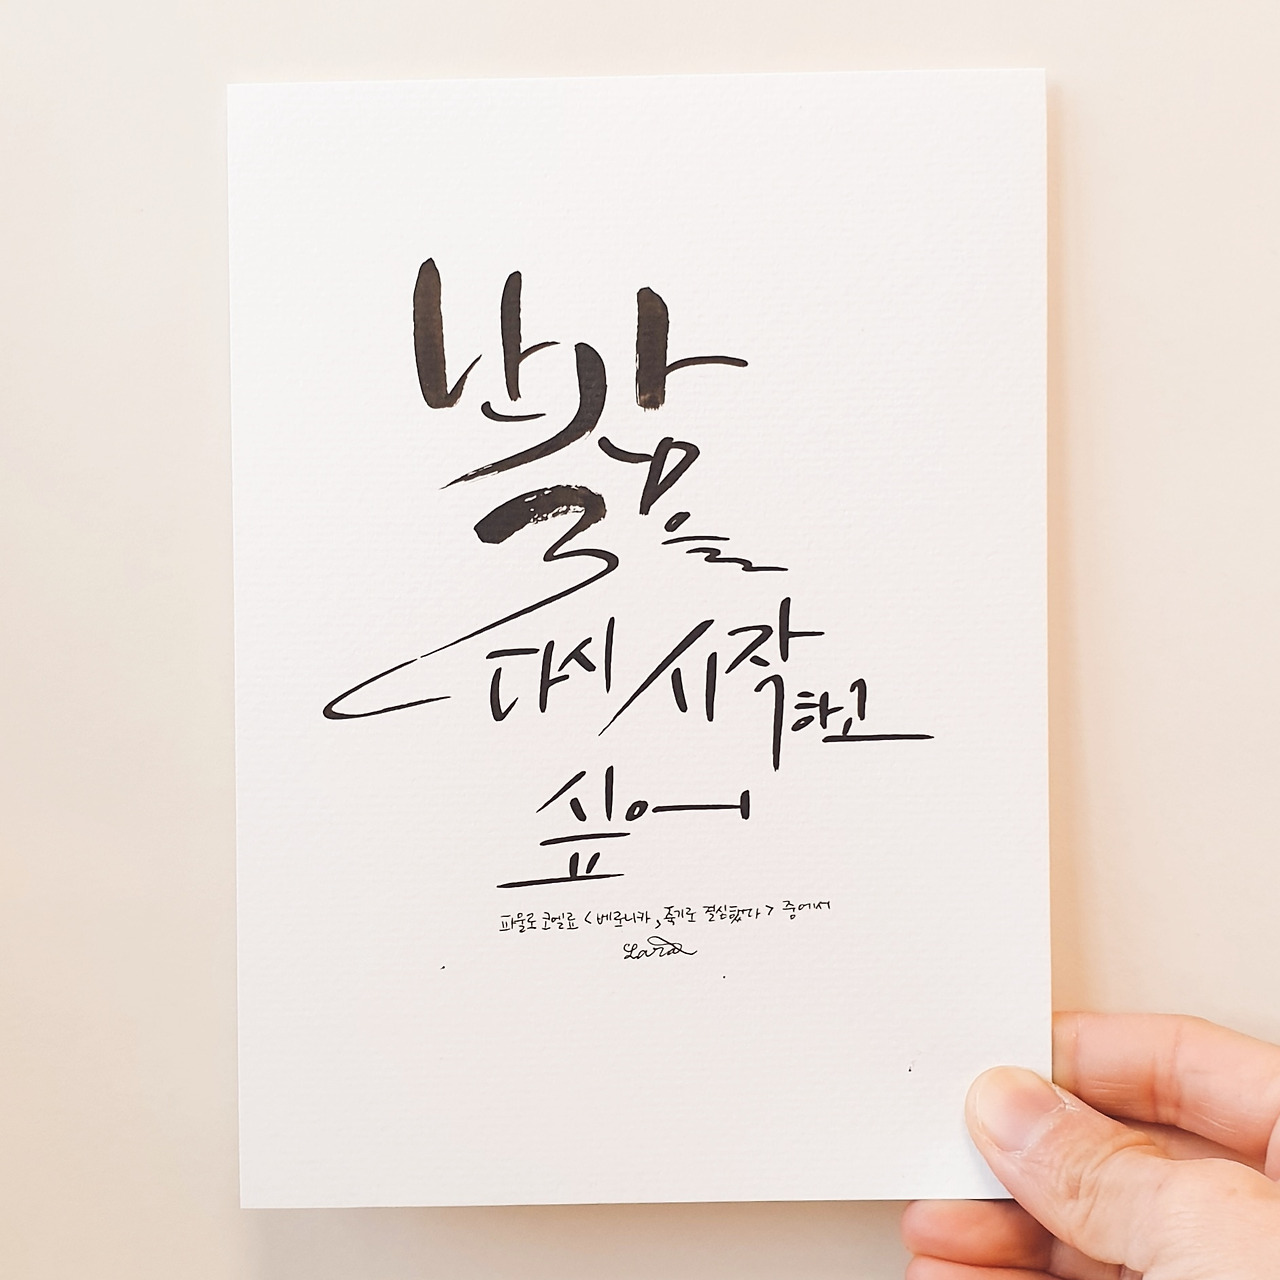 난 삶을
다시 시작하고
싶어
파울로 코엘료 <베로니카, 죽기로 결심했다> 중에서
Lara